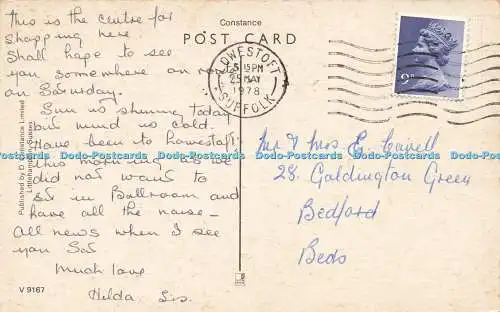 Constance
POST CARD
This is the centre for
shopping here
Shall hope to see
you somewhere on
on Saturday.
Sun is shining today
but wind is cold.
Have been to Lowestoft
this morning as we
did not want to
sit in Ballroom and
have all the noise -
All news when I see
you Sat
Much love
Hilda. Sis.
V 9167
Published by D. Constance Limited
Littlehampton, Sussex
LOWESTOFT
5 15PM
25 MAY
1978
SUFFOLK
9P
Mr & Mrs E. Cavell
28 Goldington Green
Bedford
Beds
Dodo-Postcards Dodo-Postcards Dodo-Postcards Dodo-Postcards Dodo-Postcards Dodo-Postcards